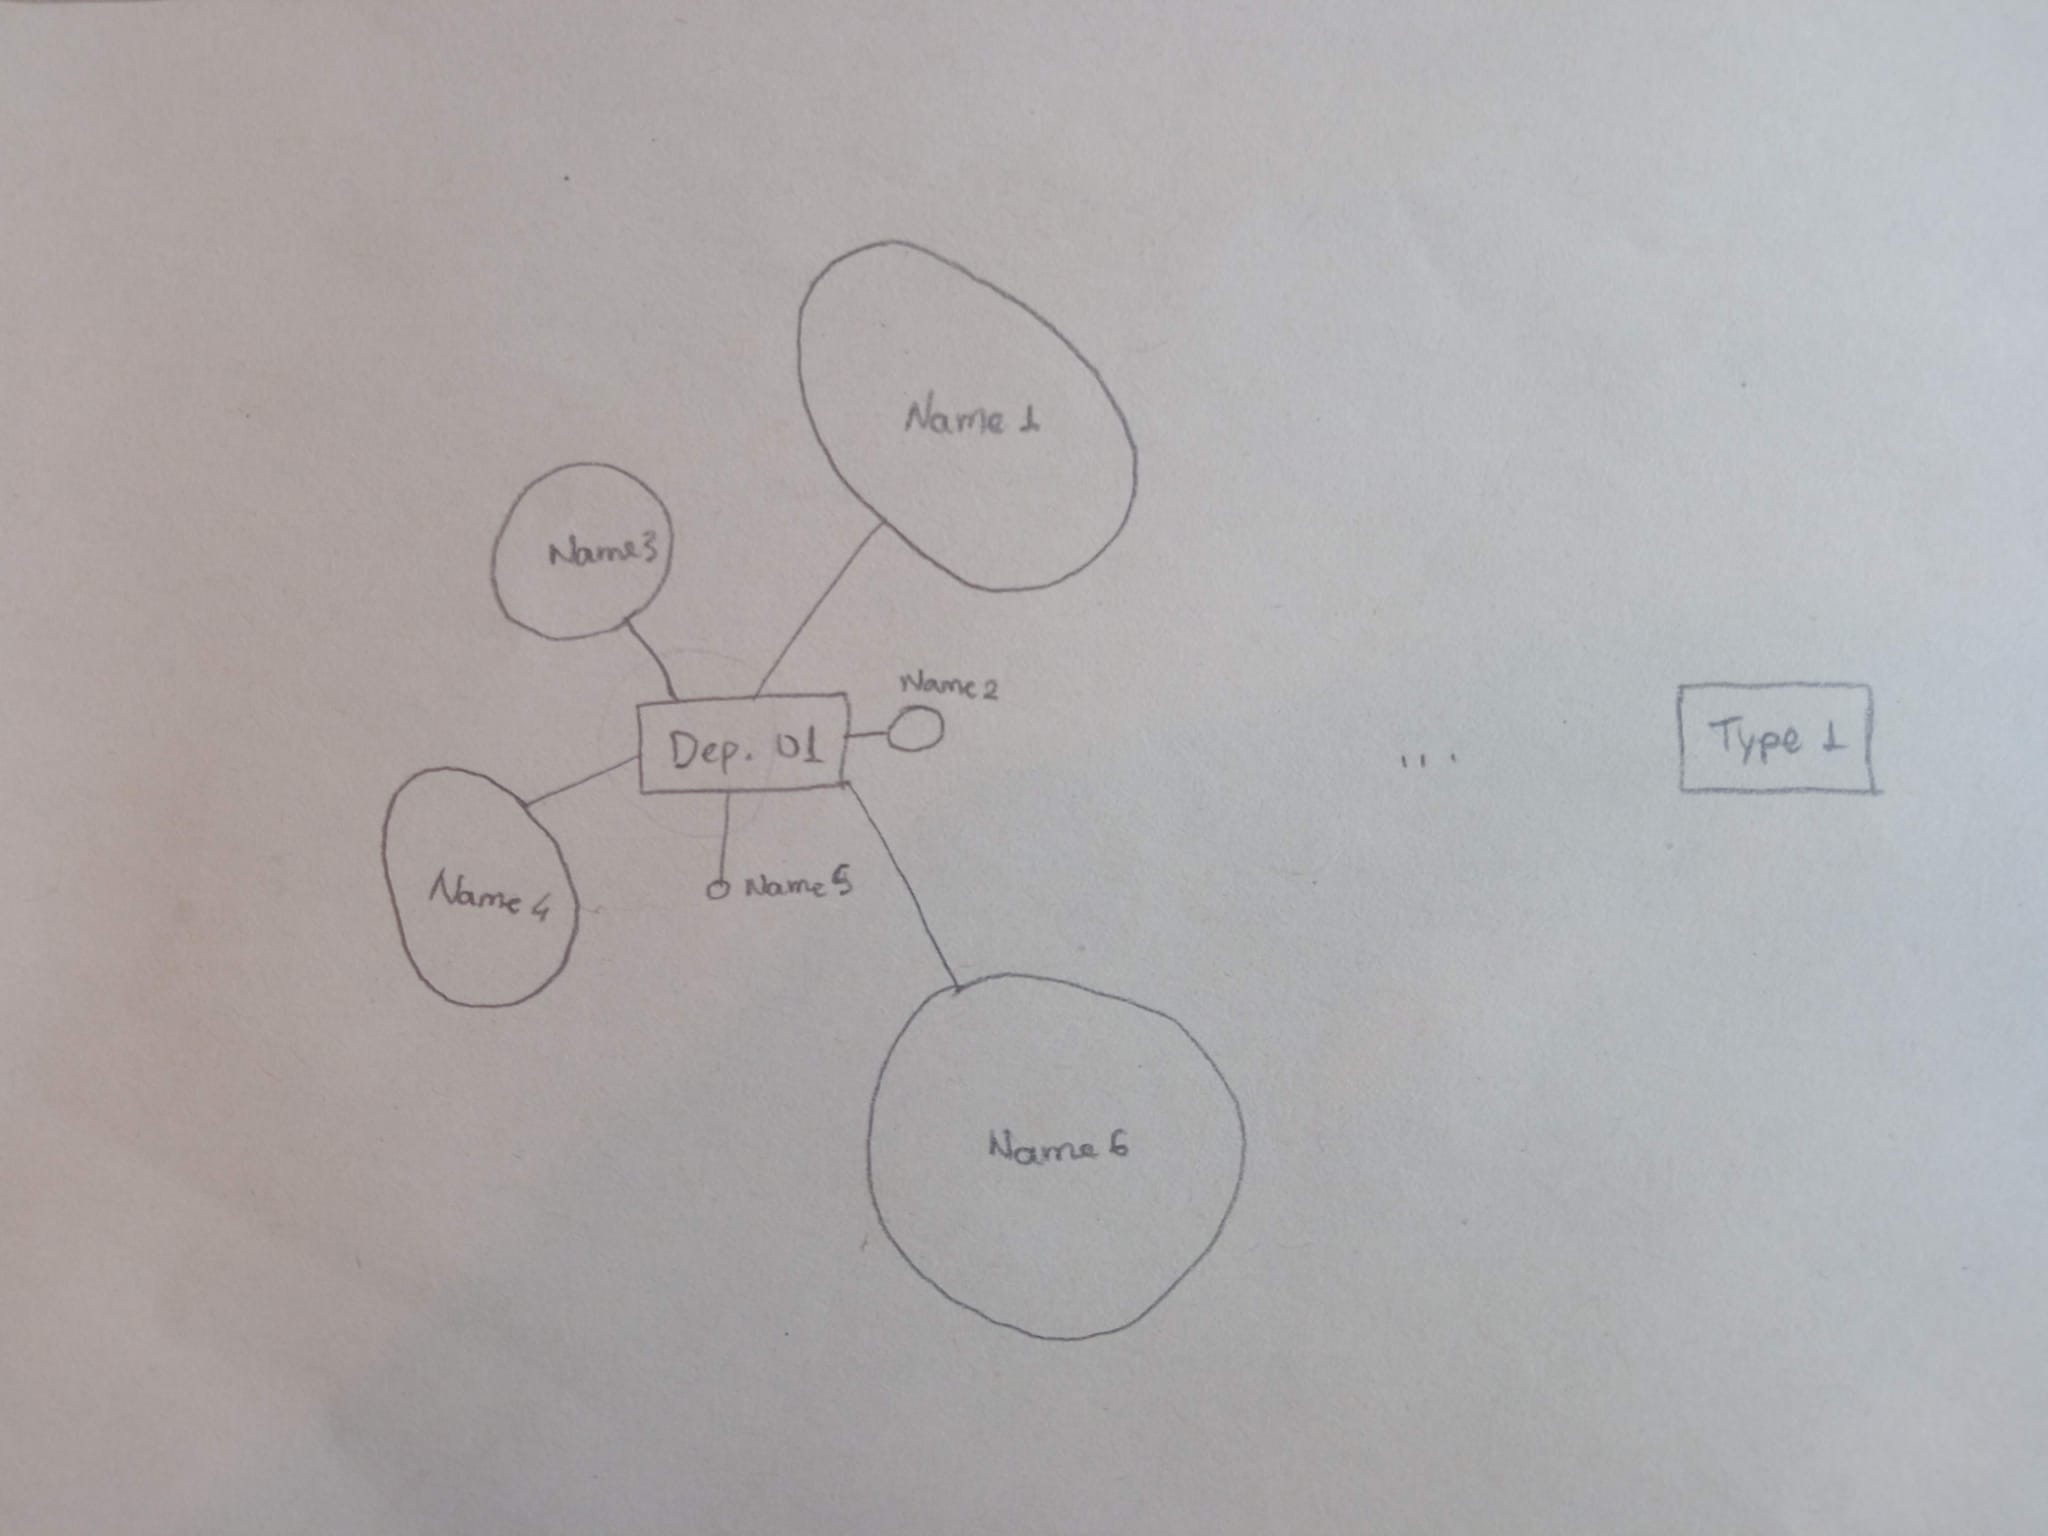 Name 1
Name3
Name2
Dep. 01
...
Type 1
Name 4
Name 5
Name 6